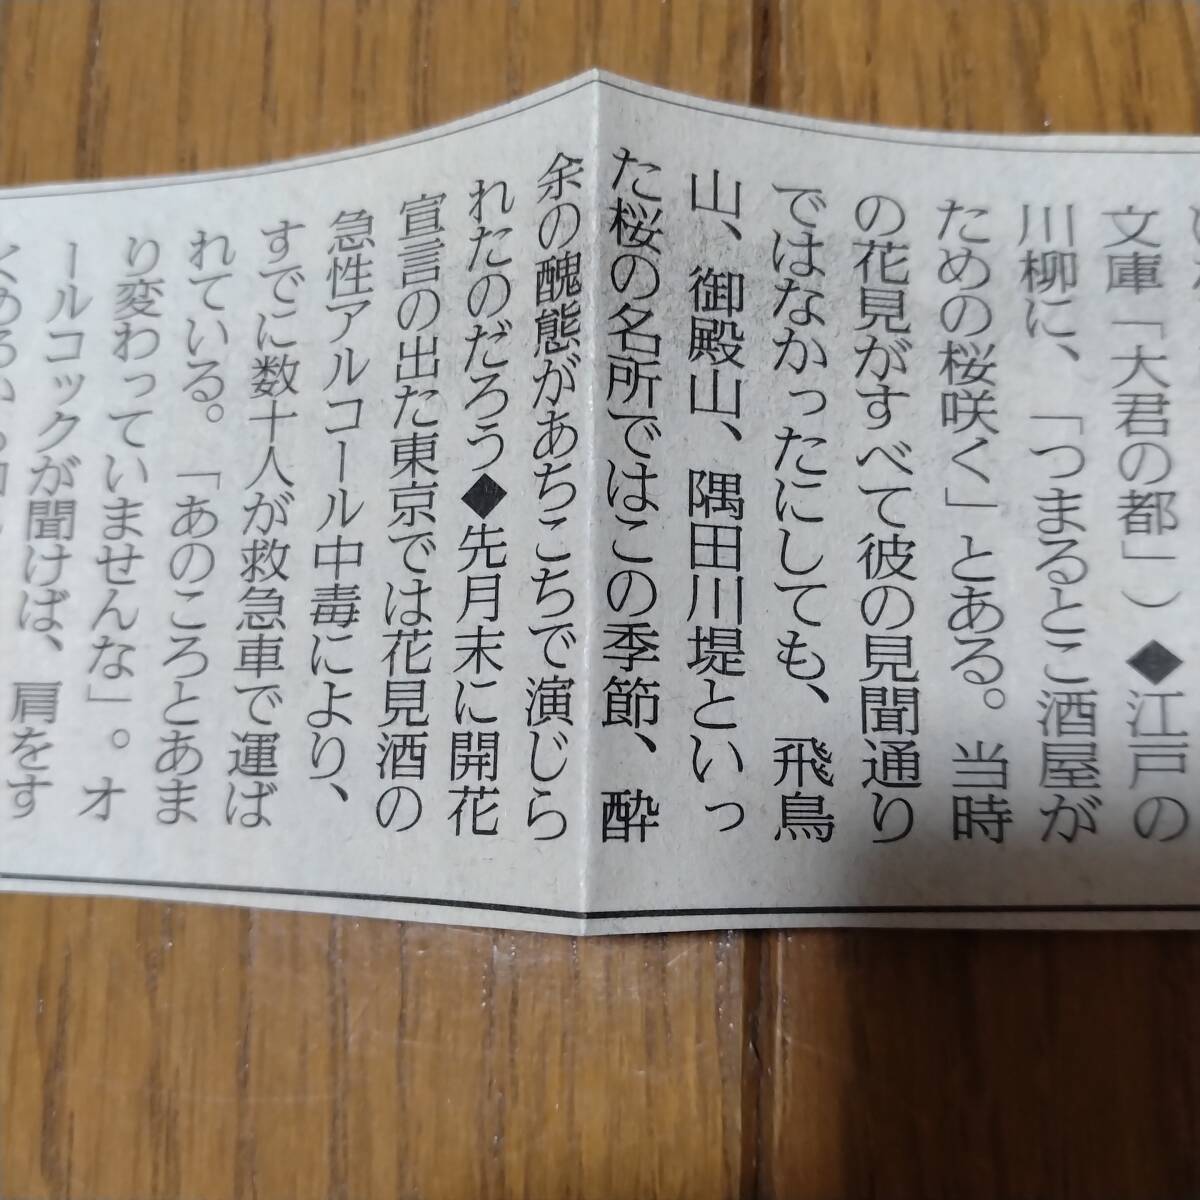 文庫「大君の都」）◆江戸の
川柳に、「つまるとこ酒屋が
ための桜咲く」とある。当時
の花見がすべて彼の見聞通り
ではなかったにしても、飛鳥
山、御殿山、隅田川堤といっ
た桜の名所ではこの季節、酔
余の醜態があちこちで演じら
れたのだろう◆先月末に開花
宣言の出た東京では花見酒の
急性アルコール中毒により、
すでに数十人が救急車で運ば
れている。「あのころとあま
り変わっていませんな」。オ
ールコックが聞けば、肩をす